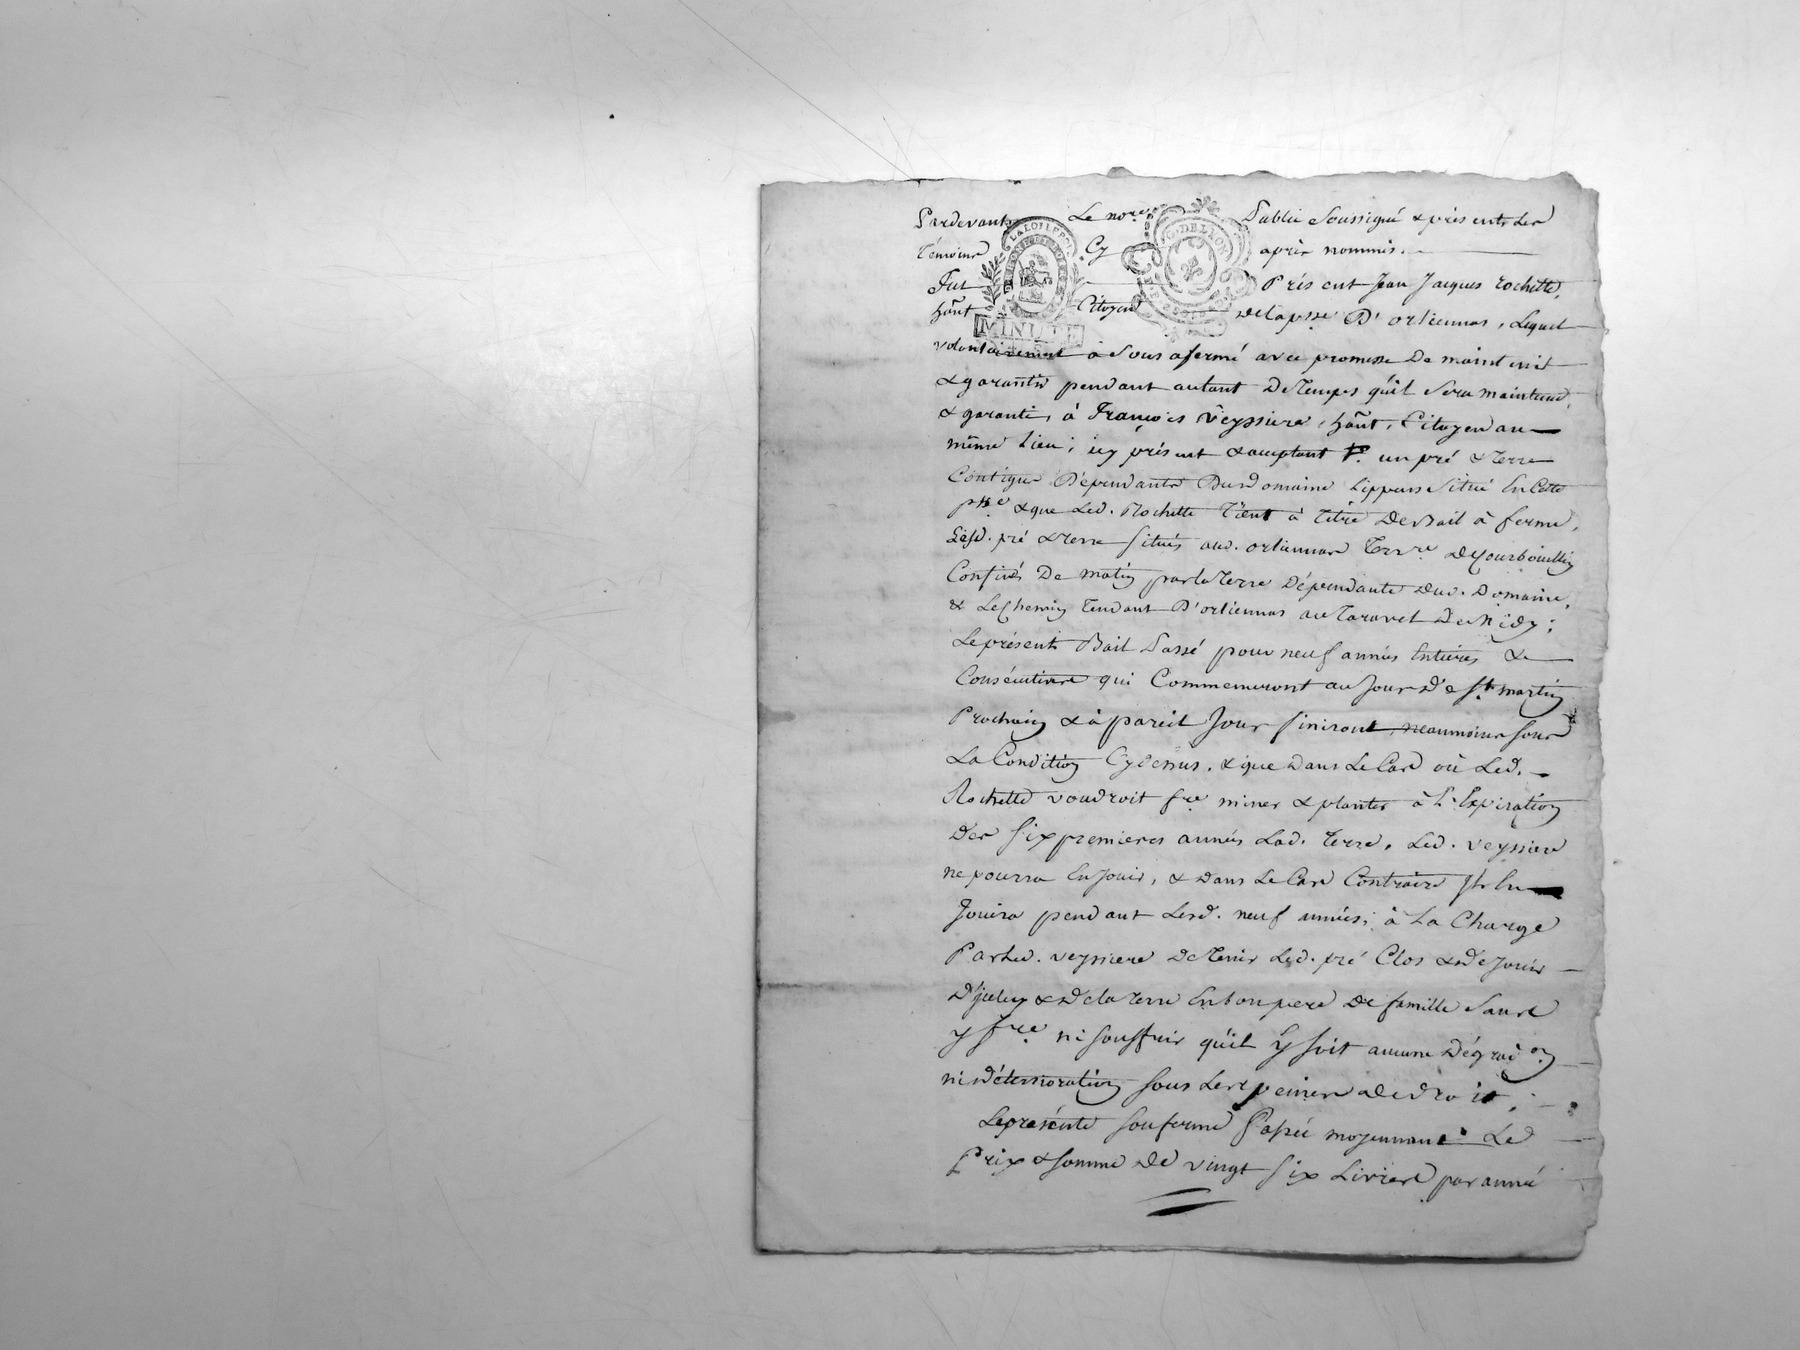 Pardevant Le nore Public Soussigné & présents Les
Témoins Cy après nommés.
Fut Présent Jean Jacques Rochette,
hãnt Citoyen de la psse D'orliennas, Lequel
MINUTE
volontairement à Sous afermé avec promesse De maintenir
& garantir pendant autant De Temps qu'il Sera maintenu,
& garanti, à François Veyssiere, hãnt, Citoyen au
même Lieu; icy présent & acceptant un pré & Terre
Contigus Dépendants Du Domaine Situé En Cette
psse & que Led. Rochette Tient à Titre De Bail à ferme,
Lesd. pré & Terre Situés aud. orliennas Terre de
Confinés De matin par la Terre Dépendante Dud. Domaine,
& Le Chemin Tendant D'orliennas au
Le présent Bail Passé pour neuf années Entieres &
Consécutives qui Commenceront au Jour De St martin
Prochain & à pareil Jour finiront, neanmoins Sous
La Condition Cy & que Dans Le Cas où Led.
Rochette voudroit fre miner & planter à L'Expiration
Des Six premieres années Lad. Terre, Led. Veyssiere
ne pourra En Jouir, & Dans Le Cas Contraire Il En
Jouira pendant Lesd. neuf années; à La Charge
Par Led. Veyssiere De Tenir Led. pré Clos & De Jouir
D'iceluy & De la Terre En bon pere De famille Sans
y fre ni Souffrir qu'il y Soit aucune Dégradon
ni Déterioration Sous Les peines De Droit;
Le présente Souferme Passée moyennant Le
Prix & Somme De vingt Six Livres par année